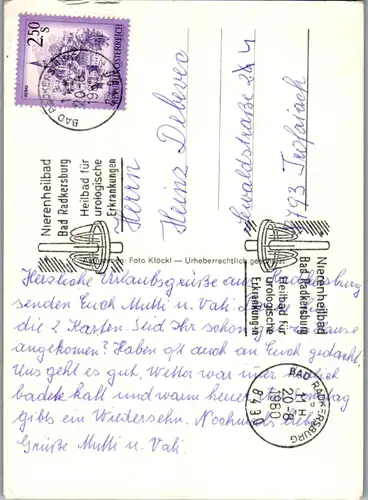 2.50 S
MURAU
REPUBLIK ÖSTERREICH
BAD RADKERSBURG
20-8
Nierenheilbad
Bad Radkersburg
Heilbad für
urologische
Erkrankungen
Herrn
Heinz Debevec
8793 Trofaiach
Foto Klöckl — Urheberrechtlich
Nierenheilbad
Bad Radkersburg
Heilbad für
urologische
Erkrankungen
BAD RADKERSBURG
11 H
20-8
1980
8490
Herzliche Urlaubsgrüße aus
senden Euch Mutti u. Vati.
die 2 Karten. Seid Ihr schon
angekommen? Haben oft auch an Euch gedacht.
Uns geht es gut. Wetter war
badete kalt und warm heuer. Sonntag
gibts ein Wiedersehn. Nochmals liebe
Grüße Mutti u. Vati.